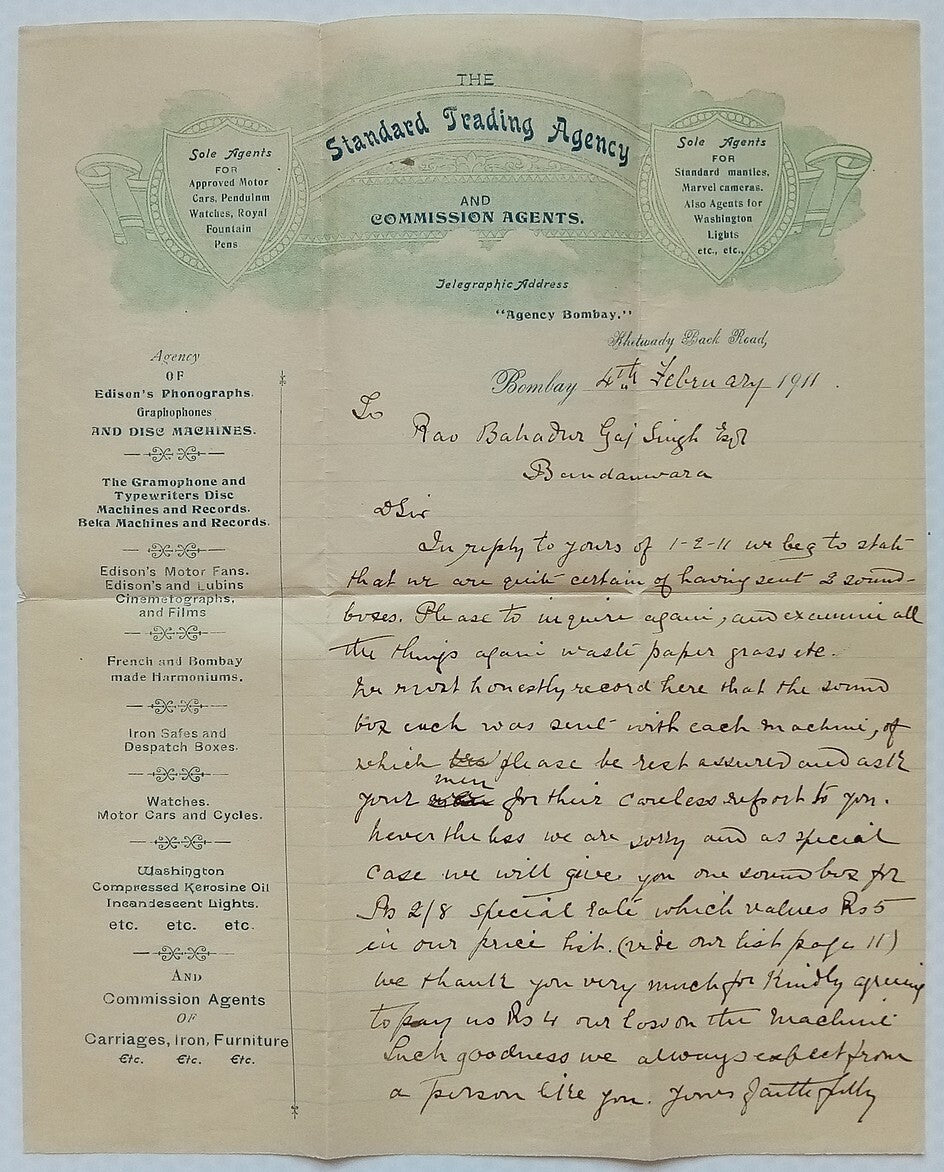 THE
Standard Trading Agency
AND
COMMISSION AGENTS.
Sole Agents
FOR
Approved Motor
Cars, Pendulum
Watches, Royal
Fountain
Pens
Sole Agents
FOR
Standard mantles,
Marvel cameras.
Also Agents for
Washington
Lights
etc., etc.,
Telegraphic Address
"Agency Bombay."
Khetwady Back Road,
Bombay 4th February 1911.
Agency
OF
Edison's Phonographs.
Graphophones
AND DISC MACHINES.
The Gramophone and
Typewriters Disc
Machines and Records.
Beka Machines and Records.
Edison's Motor Fans.
Edison's and Lubins
Cinemetographs,
and Films
French and Bombay
made Harmoniums.
Iron Safes and
Despatch Boxes.
Watches.
Motor Cars and Cycles.
Washington
Compressed Kerosine Oil
Incandescent Lights.
etc. etc. etc.
AND
Commission Agents
OF
Carriages, Iron, Furniture
Etc. Etc. Etc.
To
Rao Bahadur Gaj Singh Esqr
Bandanwara
DSir
In reply to yours of 1-2-11 we beg to state
that we are quite certain of having sent 2 sound-
boxes. Please to inquire again, and examine all
the things again waste paper grass etc.
We most honestly record here that the sound
box each was sent with each machine, of
which please be rest assured and ask
your men for their careless report to you.
Nevertheless we are sorry and as special
case we will give you one sound box for
Rs 2/8 special rate which values Rs 5
in our price list. (vide our list page 11)
We thank you very much for kindly agreeing
to pay us Rs 4 our loss on the machine
Such goodness we always expect from
a person like you. Yours faithfully